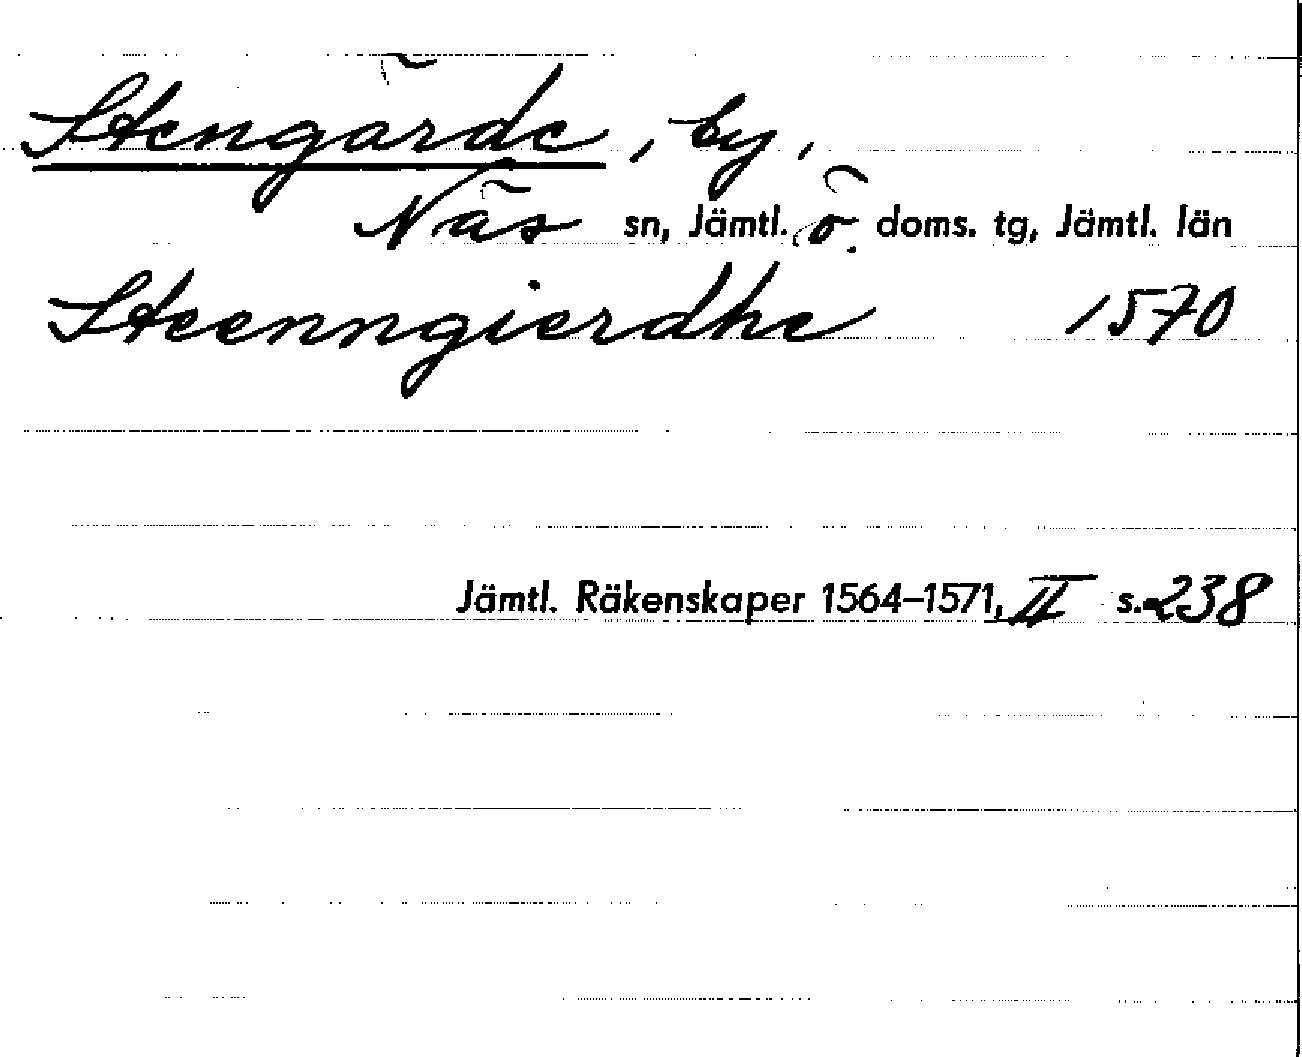 Stengärde, by,
Näs sn, Jämtl. ö. doms. tg, Jämtl. län
Steenngierdhe 1570
Jämtl. Räkenskaper 1564–1571, II s. 238